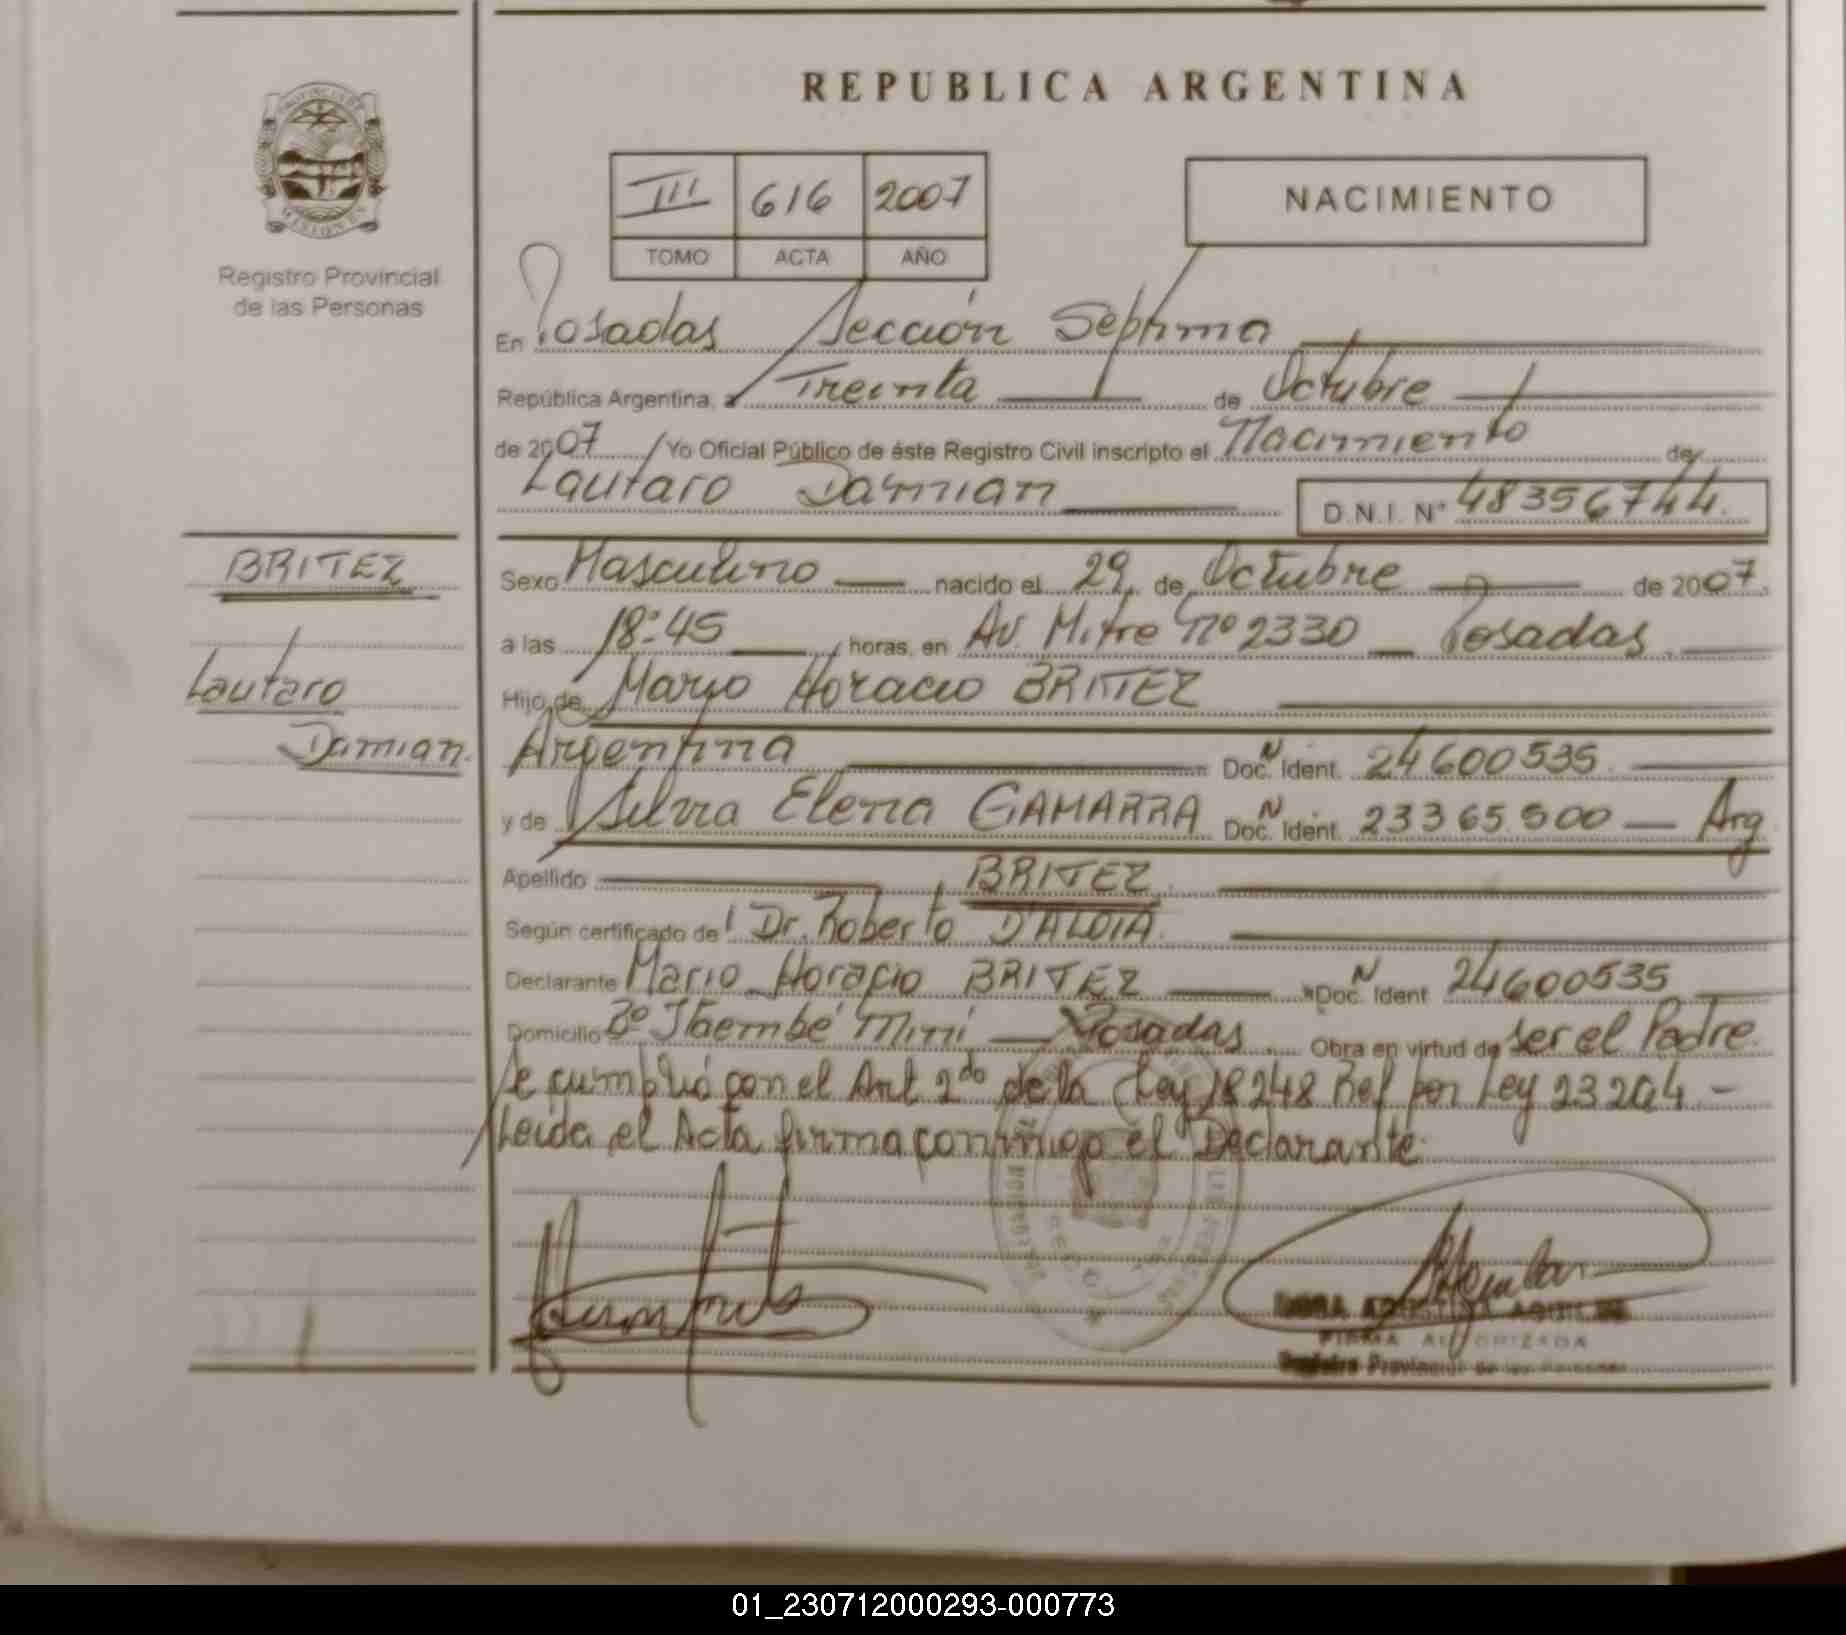 REPUBLICA ARGENTINA
PROVINCIA DE
MISIONES
Registro Provincial
de las Personas
III 616 2007
TOMO ACTA AÑO
NACIMIENTO
En Posadas Sección Septima
República Argentina, a Treinta de Octubre
de 2007 Yo Oficial Público de éste Registro Civil inscripto el Nacimiento de
Lautaro Damian D.N.I. Nº 48356744.
BRITEZ
Lautaro
Damian.
Sexo Masculino nacido el 29 de Octubre de 2007.
a las 18:45 horas, en Av. Mitre Nº 2330 Posadas.
Hijo de Mario Horacio BRITEZ
Argentina Doc. N Ident. 24600535.
y de Silvia Elena GAMARRA Doc. N Ident. 23365.500 Arg
Apellido BRITEZ.
Según certificado de Dr. Roberto D'ALOIA.
Declarante Mario Horacio BRITEZ Doc. N Ident 24600535
Domicilio Bº Itaembé Miní Posadas. Obra en virtud de ser el Padre.
Se cumplió con el Art 2do de la Ley 18248 Ref por Ley 23264 -
Leida el Acta firma conmigo el Declarante.
AGUILAR
FIRMA AUTORIZADA
Registro Provincial de las Personas
01_230712000293-000773